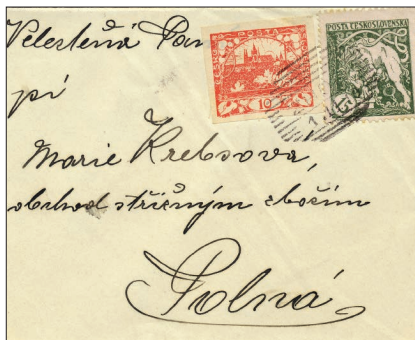 Velectěná Paní
pí
Marie Krebsova,
obchod střižným zbožím
Polná
POŠTA ČESKOSLOVENSKÁ
10
15